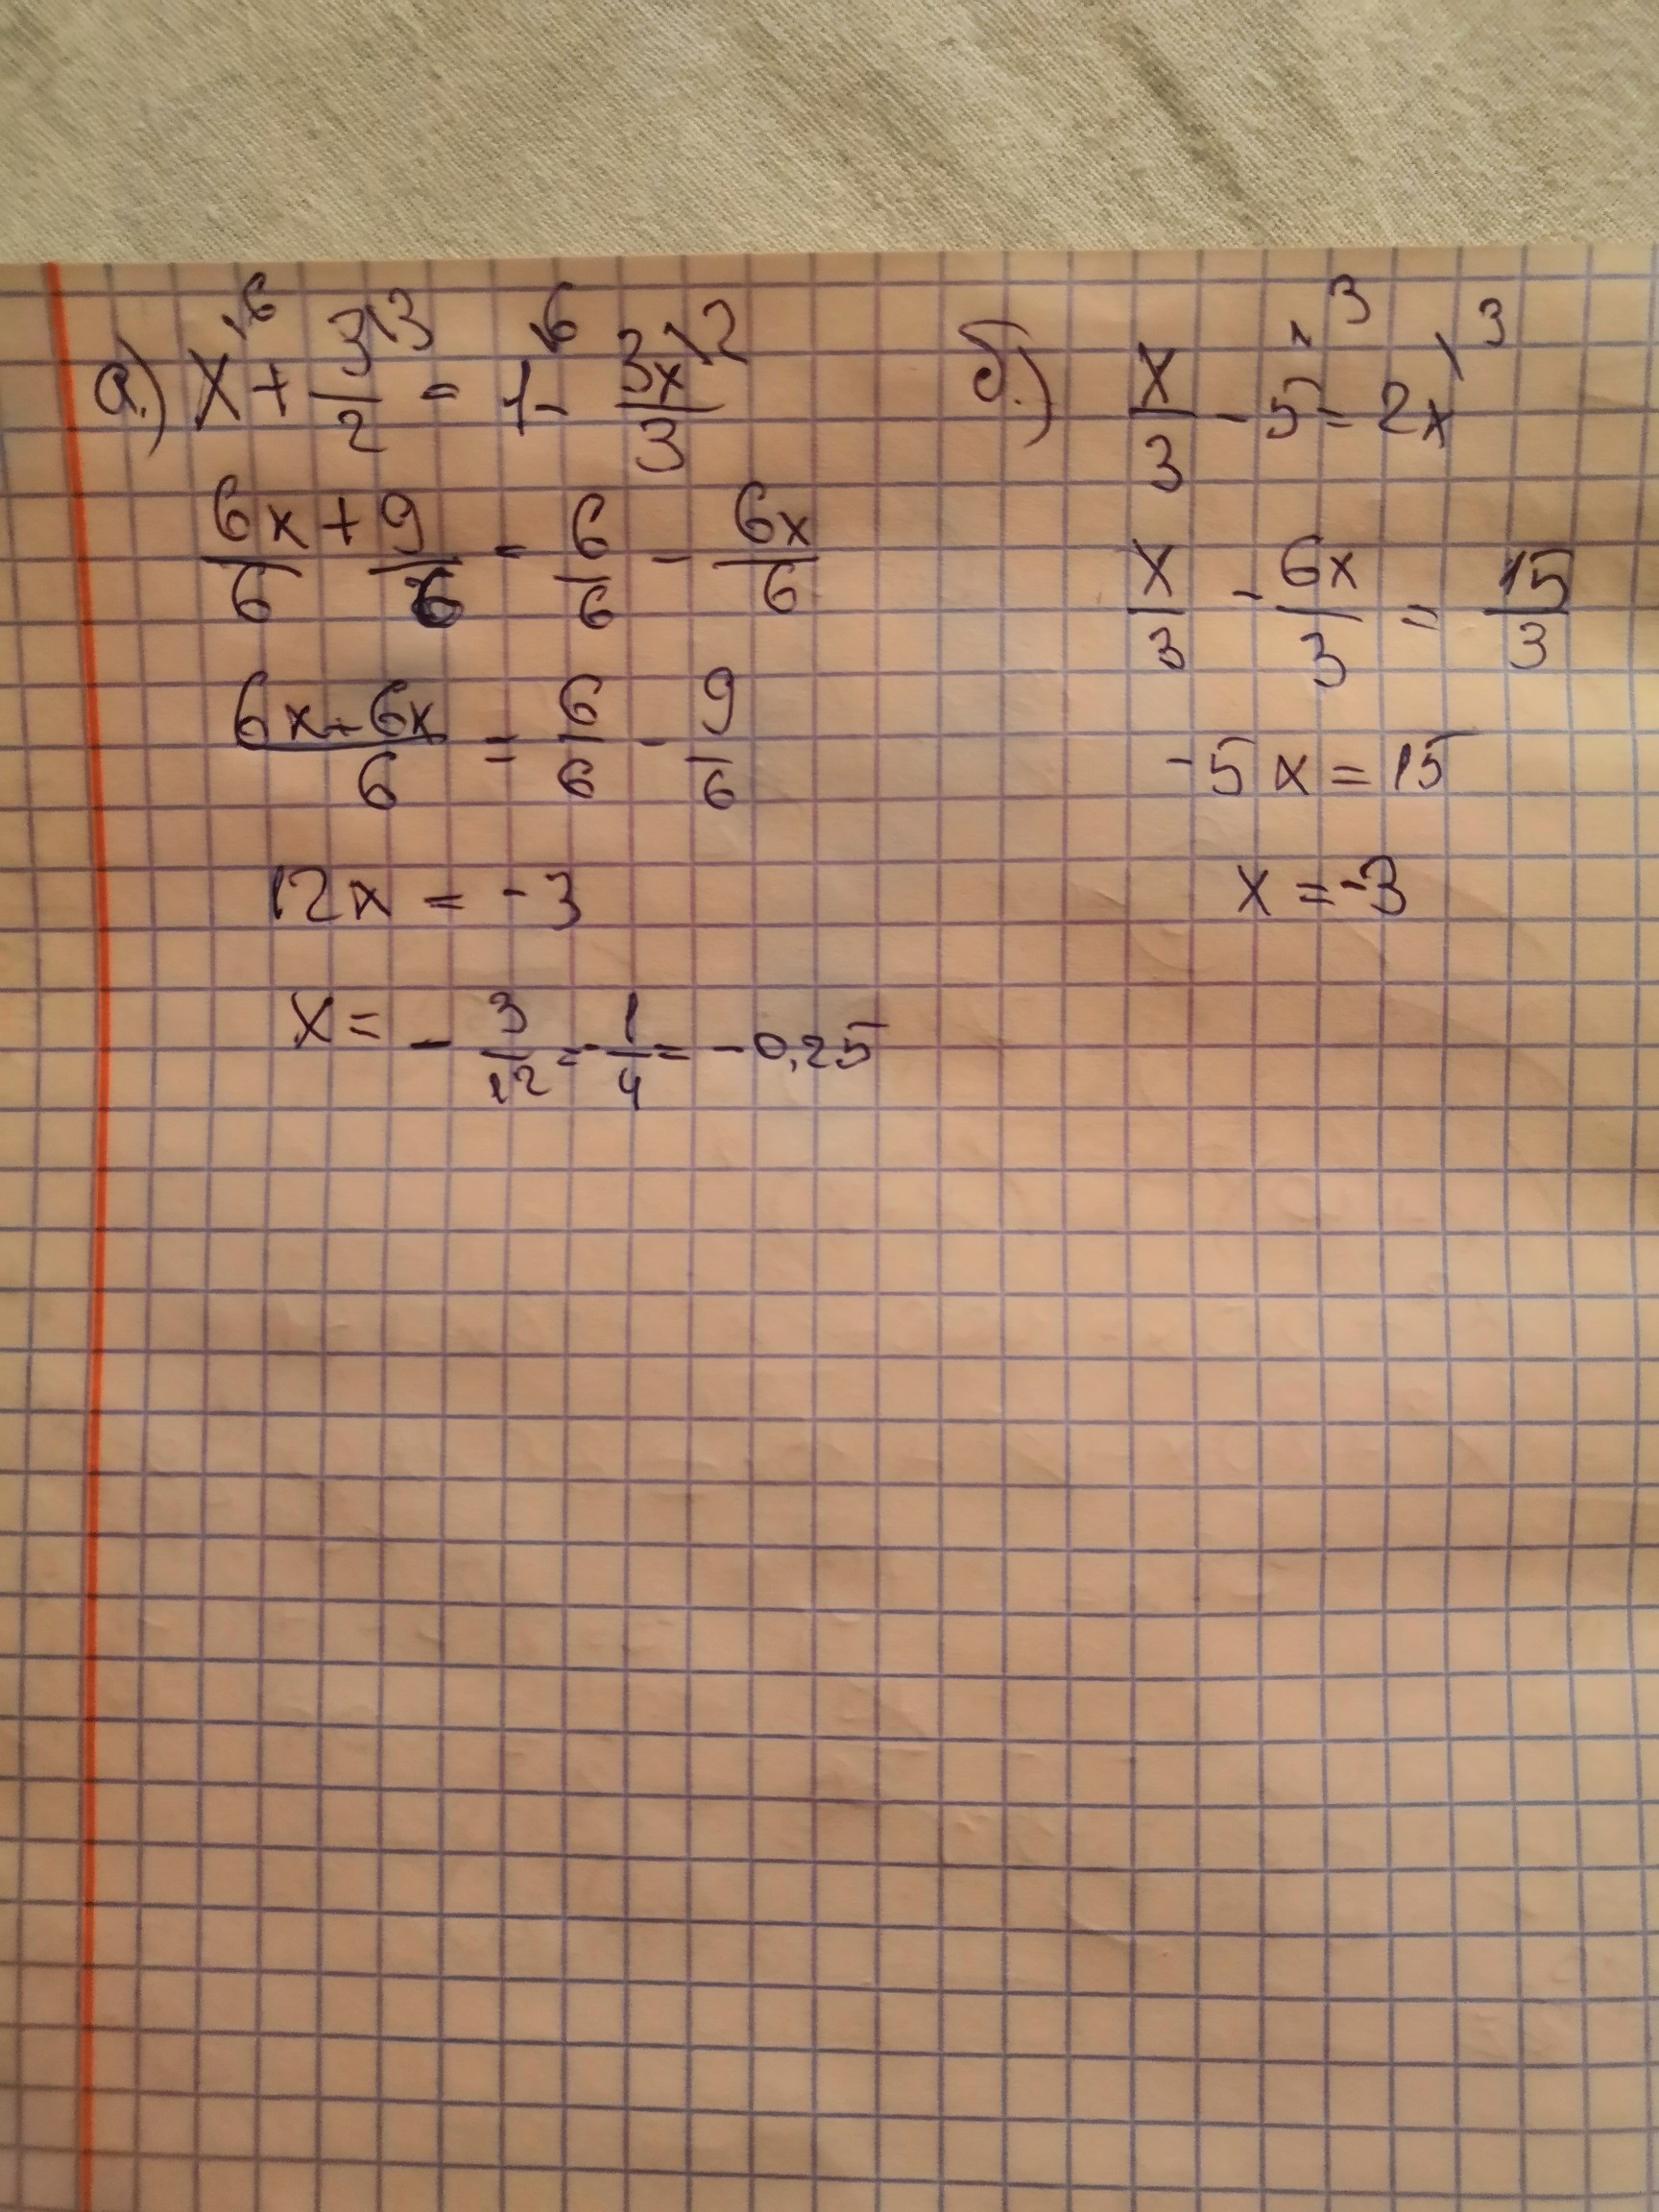 а.) x\6 + 3/2\3 = 1\6 - 3x/3\2
6x/6 + 9/6 = 6/6 - 6x/6
(6x+6x)/6 = 6/6 - 9/6
12x = -3
x = - 3/12 = - 1/4 = -0,25
б.) x/3 - 5\3 = 2x\3
x/3 - 6x/3 = 15/3
-5x = 15
x = -3